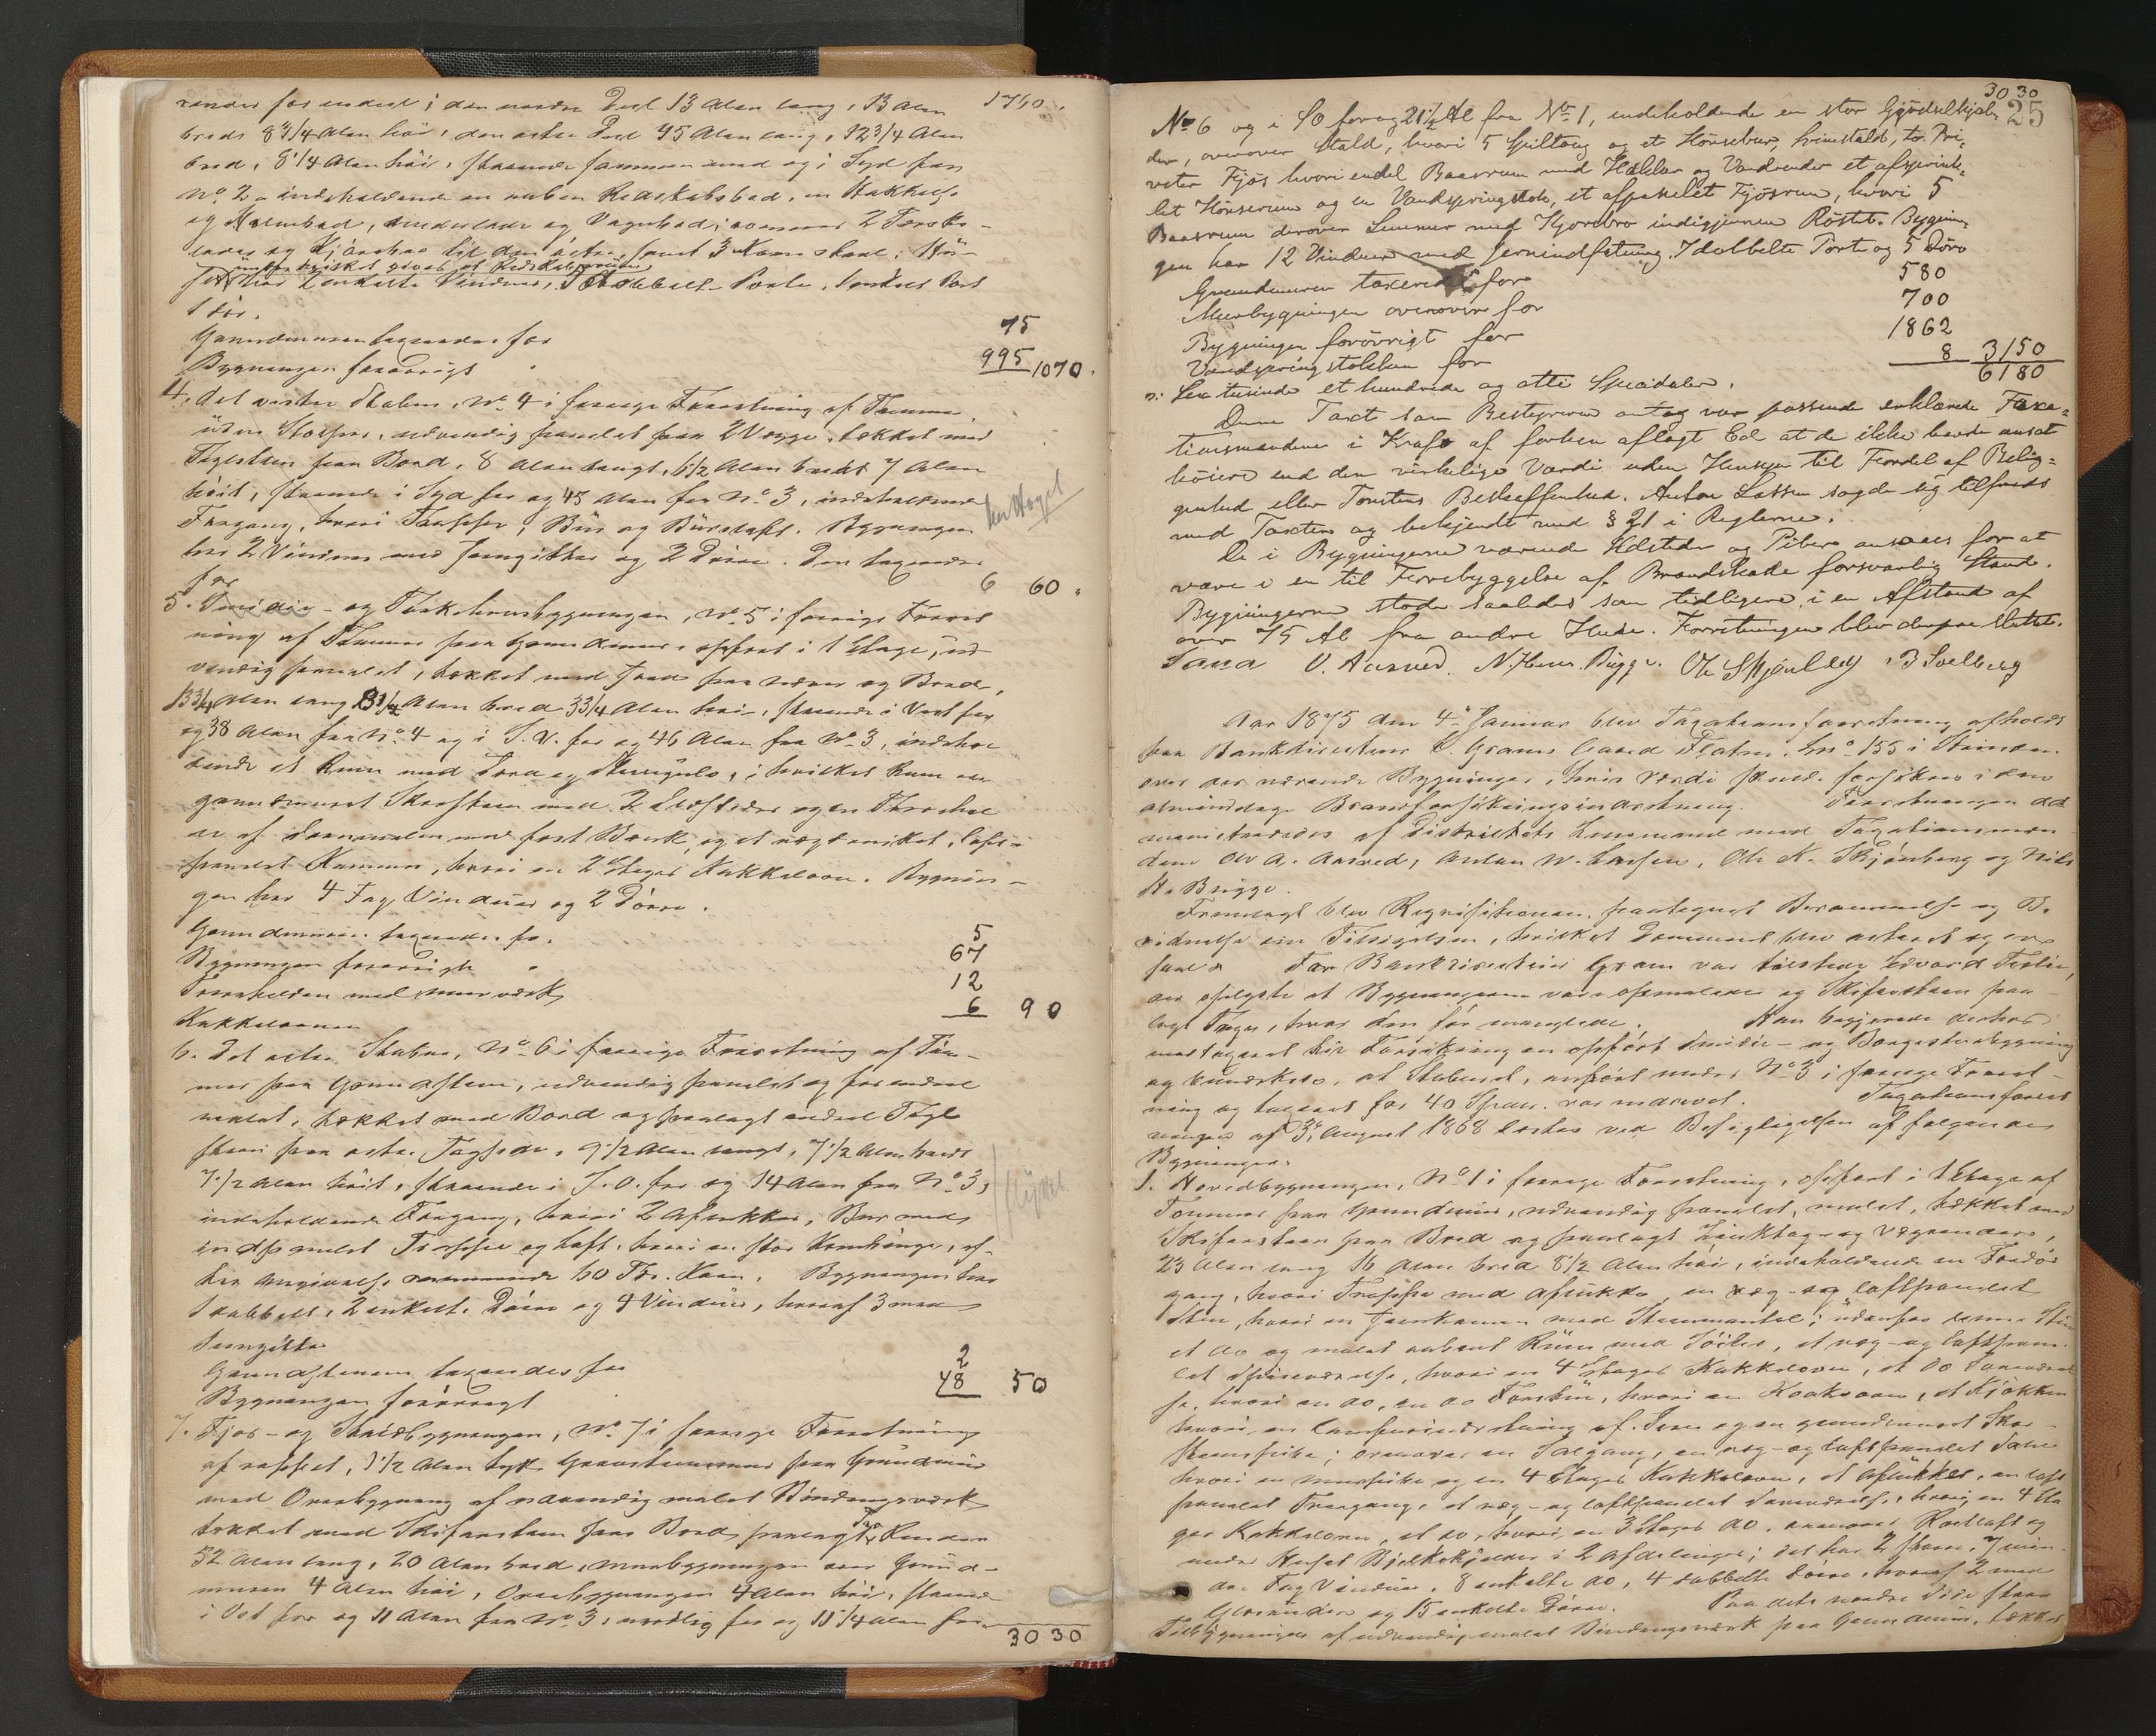 render for endeel i den nordre Deel 13 Alen lang, 13 Alen 1750.
bred 8 3/4 Alen høi, den østre Deel 45 Alen lang, 12 3/4 Alen
bred, 8 1/4 Alen høi, staaende sammen med og i Syd for
No. 2 - indeholdende en aaben Redskabsbod, en Hakkelse
og Vognbod, ovenover 2 Tærske-
og Kjørebro til den østre, samt 3 Kornstaal. Hu-
set har 2 enkelte Vinduer, dobbelte Porte, 1 enkelt Port
1 Dør.
Grundmuren taxeredes for 75
Bygningen forøvrigt " 995 1070.
4. Det vestre Stabur, No. 4 i forrige Forretning af Tømmer
uden Stolper, udvendig panelet paa 2 Vægge, tækket med
Taglsteen paa Bord, 8 Alen langt, 6 1/2 Alen bredt 7 Alen
høit, staaende i Syd for og 45 Alen fra No. 3, indeholdende
Forgang, hvori Trappe, Bur og Burloft. Bygningen
har 2 Vinduer med Jerngitter og 2 Døre. Den taxeredes
for 60.
5. Smidie- og Tørkehuusbygningen, No. 5 i forrige Forret
ning af Tømmer paa Grundmuur, opført i 1 Etage, ud-
vendig panelet, tækket med Jord paa Næver og Bord,
13 3/4 Alen lang Alen bred 3 3/4 Alen høi, staaende i Vest for
og 38 Alen fra No. 4 og i S.V. for og 46 Alen fra No. 3, indehol
dende et Rum med
grundmuret Skorsteen med 2 Ildsteder og en Tørkekedel
af med fast Bænk, og et lofts-
panelet Kammer, hvori en 2 Etages Kakkelovn. Bygnin-
gen har 4 Fag Vinduer og 2 Døre.
Grundmuren taxeredes for 5
Bygningen forøvrigt " 67
med Muurværk 12
Kakkelovnen 6 90
6. Det østre Stabur, No. 6 i forrige Forretning af Tøm-
mer paa Grundsteen, udvendig panelet og for endeel
malet, tækket med Bord og paalagt endeel Tagl
steen paa østre Tagside, 9 1/2 Alen langt, 7 1/2 Alen bredt
7 1/2 Alen høit, staaende i S.O. for og 14 Alen fra No. 3,
indeholdende Forgang, hvori 2 Aflukker, Bur med
indpanelet Trappe og Loft, hvori en stor Kornbinge, ef-
ter Angivelse rummende 60 Tdr. Korn. Bygningen har
1 dobbelt, 2 enkelte Døre og 4 Vinduer, hvoraf 3 med
Jerngitter
Grundstenen taxeredes for 2
Bygningen forøvrigt 48 50
7. Fjøs- og Staldbygningen, No. 7 i forrige Forretning
af rappet, 1 1/2 Alen tyk Graasteensmuur paa Grundmuur
med Overbygning af udvendig malet Bindingsværk
tækket med Skifersteen paa Bord, paalagt Tagrender
52 Alen lang, 20 Alen bred, Muurbygningen over Grund-
muren 4 Alen høi, Overbygningen 4 Alen høi, staaende
i Øst for og 11 Alen fra No. 3, nordlig for og 11 1/4 Alen fra
3030
3030
25
No 6 og i SO for og 21 1/2 Al fra No 1, indeholdende en stor Gjødselkjel-
der, ovenover Stald, hvori 5 Spiltoug og et Hønsebur, Svinestald, to Pri-
veter Fjøs hvori endel Baasrum med Hækker og Vandrender et afsprink-
let Hønserum og en Vandspringstok, et afpanelet Fjøsrum, hvori 5
Baasrum derover Lemmer med Kjørebro indigjennem Røstet. Bygnin-
gen har 12 Vinduer med Jernindfatning, 7 dobbelte Porte og 5 Døre
Grundmuren taxeredes for 580
Murbygningen ovenover for 700
Bygningen forøvrigt for 1862
Vandspringstokken for 8 3150
6180
Sex tusinde et hundrede og otti Speciedaler.
Denne Taxt som Bestyreren antog var passende erklærede Taxa-
tionsmændene i Kraft af forhen aflagt Ed at de ikke havde ansat
høiere end den virkelige Værdi uden Hensyn til Fordel af Belig-
genhed eller Tomtens Beskaffenhed. Anton Larsen sagde sig tilfreds
med Taxten og bekjendt med § 21 i Reglerne.
De i Bygningerne værende Ildsteder og Piber ansaaes for at
være i en til Forebyggelse af Brandskade forsvarlig Stand.
Bygningerne stode saaledes som tidligere i en Afstand af
over 75 Al fra andre Huse. Forretningen blev derpaa sluttet.
Sand O. Aasved. N. Hans. Brigge. Ole Skjønberg B Solberg
Aar 1875 den 4de Januar blev Taxationsforretning afholdt
paa Bankdirecteur C. Grams Gaard Flaten, Lno 155 i Strinden
over der værende Bygninger, hvis Værdi skulde forsikres i den
almindelige Brandforsikringsindretning. Forretningen ad
ministreredes af Distriktets Lensmand med Taxationsmæn-
dene Ole A. Aasved, Anton W. Larsen, Ole K. Skjønberg og Niels
H. Brigge.
Fremlagt blev Requisitionen, paategnet Berammelse og B.
vidnelse om Tilsigelsen, hvilket Document blev
For Bankdirecteur Gram var tilstede Edvard
der oplyste at Bygningerne vare opmalede og Skifersteen paa-
lagt Taget, hvor den før manglede. Han begjerede derhos
modtaget til Forsikring en opført Smidie- og Borgestuebygning
og bemærkede, at Staburet, anført under No. 3 i forrige Forret-
ning og taxeret for 40 Spdlr. var nedrevet. Taxationsforret
ningen af 3die August 1868 læstes ved Besigtigelsen af følgende
Bygninger:
1. Hovedbygningen, No. 1 i forrige Forretning, opført i 1 Etage af
Tømmer paa Grundmuur, udvendig panelet, malet, tækket med
Skifersteen paa Bord og paalagt Zinktag- og Vægrender,
23 Alen lang 16 Alen bred 8 1/2 Alen høi, indeholdende en Fordør
gang, hvori Trappe med Aflukke, en væg- og loftpanelet
Stue, hvori en med Steenmantel; udenfor denne Stue
et do og malet aabent Rum med Søiler, et væg- og loftpane-
let Spiseværelse, hvori en 4 Etages Kakkelovn, et do Soveværel
se, hvori en do, en do Forstue, hvori en Kooksovn, et Kjøkken
hvori en Komfurindretning af Jern og en grundmuret Skor-
steenspibe; ovenover en Salgang, en væg- og loftpanelet Sal
hvori en Murpibe og en 4 Etages Kakkelovn, et Aflukke, en loft
panelet Forgang, et væg- og loftspanelet Soveværelse, hvori en 4 Eta
ges Kakkelovn, et do, hvori en 3 Etages do, ovenover Rodloft og
under Huset Bjelkekjelder i 2 Afdelinger; det har 2 store, 7 min-
dre Fag Vinduer, 8 enkelte do, 4 dobbelte Døre, hvoraf 2 med
Glasruder og 15 enkelte Døre. Paa dets nordre Side staar
Tilbygningen af udvendig malet Bindingsværk paa Grundmuur, tækket